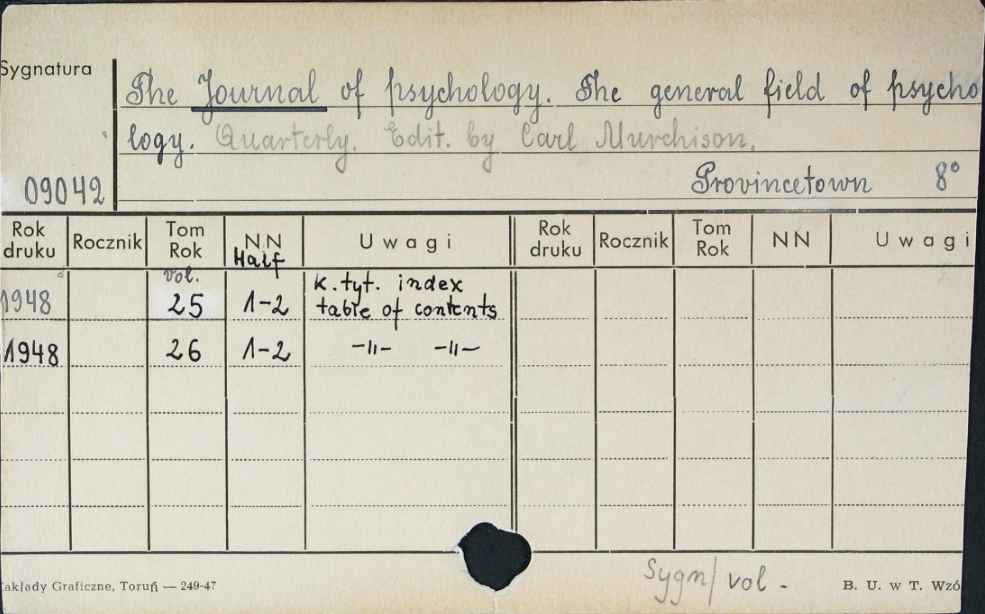 Sygnatura
The Journal of psychology. The general field of psycho
logy. Quarterly. Edit. by Carl Murchison.
09042
Provincetown 8°
Rok druku Rocznik Tom Rok NN Uwagi Rok druku Rocznik Tom Rok NN Uwagi
Half
vol.
1948 25 1-2 k. tyt. index
table of contents
1948 26 1-2 -11- -11-
Sygn/ vol -
akłady Graficzne, Toruń — 249-47 B. U. w T. Wzó